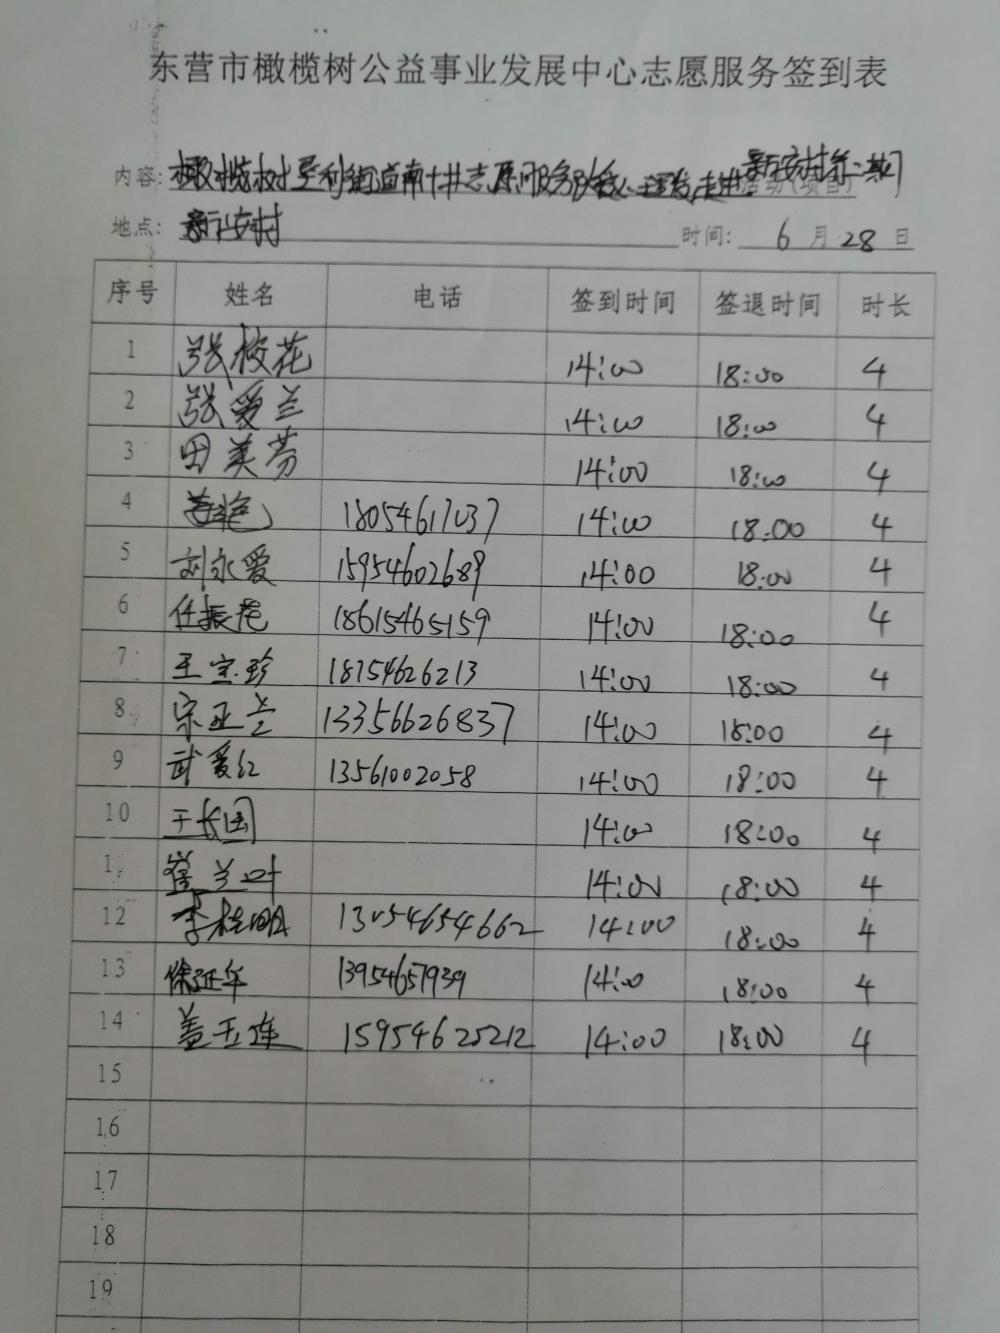 东营市橄榄树公益事业发展中心志愿服务签到表
内容: 橄榄树垦利街道南十井志愿服务队 走进新安村第二期 活动(项目)
地点: 新安村 时间: 6 月 28 日
序号 姓名 电话 签到时间 签退时间 时长
1 张校花 14:00 18:00 4
2 张爱兰 14:00 18:00 4
3 田美芬 14:00 18:00 4
4 18054617037 14:00 18:00 4
5 刘永爱 15954602689 14:00 18:00 4
6 任振花 18615465159 14:00 18:00 4
7 王宝珍 18754626213 14:00 18:00 4
8 宗亚兰 13356626837 14:00 18:00 4
9 武爱红 13561002058 14:00 18:00 4
10 于长国 14:00 18:00 4
11 崔兰叶 14:00 18:00 4
12 李桂明 13054654662 14:00 18:00 4
13 徐延华 13954657939 14:00 18:00 4
14 盖玉莲 15954625212 14:00 18:00 4
15
16
17
18
19